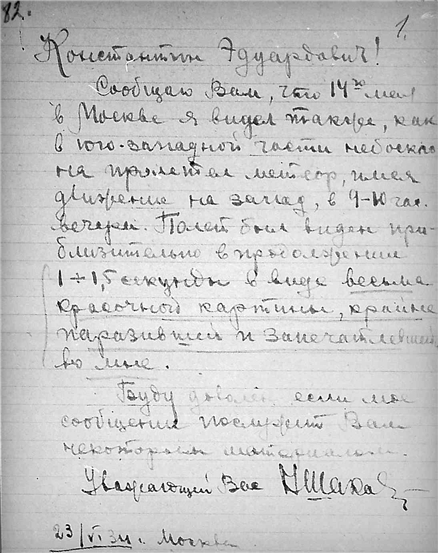 82.
1.
Константин Эдуардович!
Сообщаю Вам, что 14го мая
в Москве я видел также, как
в юго-западной части небоскло
на пролетал метеор, имея
движение на запад, в 9-10 час.
вечера. Полет был виден при-
близительно в продолжении
1÷1,5 секунды в виде весьма
красочной картины, крайне
паразившей и запечатлевшей
во мне.
Буду доволен если мое
сообщение послужит Вам
некоторым материалом.
Уважающий Вас
23/VI 34 г. Москва